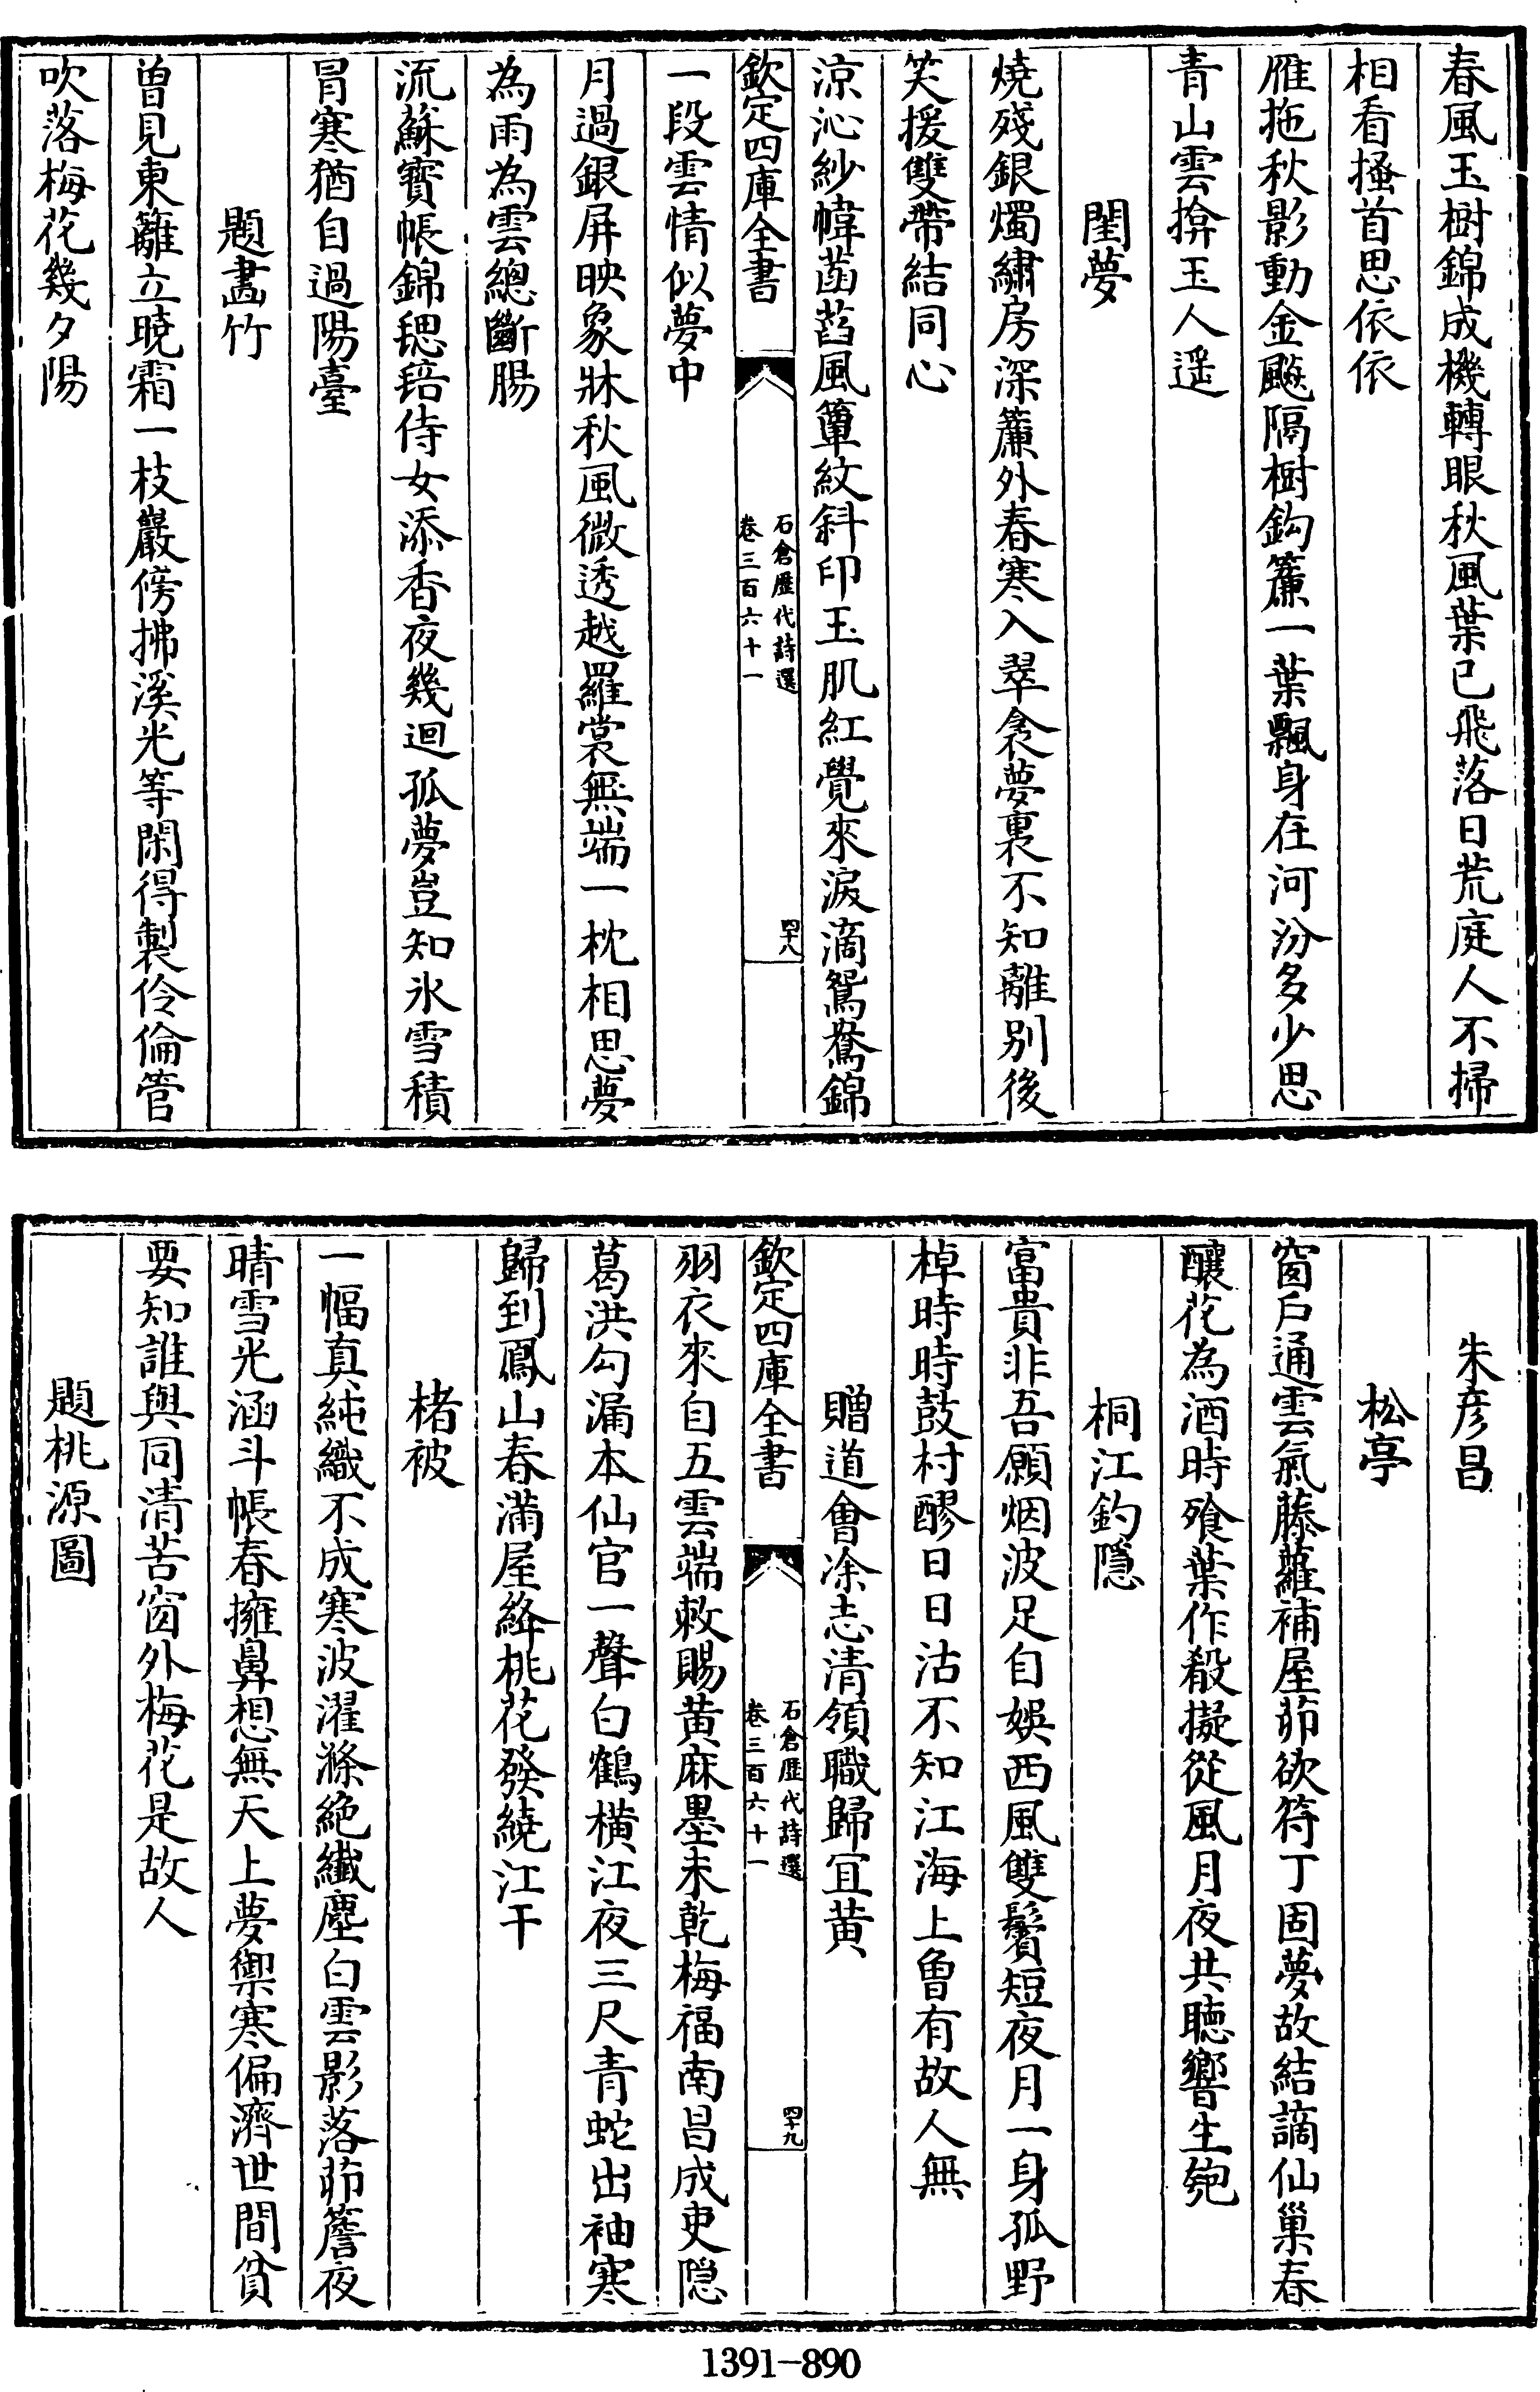 春風玉樹錦成機轉眼秋風葉已飛落日荒庭人不掃
相看搔首思依依
雁拖秋影動金颷隔樹鈎簾一葉飄身在河汾多少思
青山雲揜玉人遥
閨夢
燒殘銀燭繡房深簾外春寒入翠衾夢裏不知離别後
笑援雙帶結同心
涼沁紗幃菡萏風簟紋斜印玉肌紅覺來淚滴鴛鴦錦
欽定四庫全書
石倉歷代詩選
卷三百六十一
四十八
一段雲情似夢中
月過銀屏映象牀秋風微透越羅裳無端一枕相思夢
為雨為雲總斷腸
流蘇寳帳錦毸毰侍女添香夜幾迴孤夢豈知氷雪積
冐寒猶自過陽臺
題畵竹
曽見東籬立曉霜一枝巖傍拂溪光等閑得製伶倫管
吹落梅花幾夕陽
朱彦昌
松亭
窗戶通雲氣藤蘿補屋茆欲符丁固夢故結謫仙巢春
釀花為酒時飱葉作殽擬從風月夜共聴響生匏
桐江釣隱
富貴非吾願烟波足自娛西風雙鬢短夜月一身孤野
棹時時鼓村醪日日沽不知江海上曽有故人無
贈道會凃志清領職歸宜黄
欽定四庫全書
石倉歷代詩選
卷三百六十一
四十九
羽衣來自五雲端敕賜黄麻墨未乾梅福南昌成吏隠
葛洪勾漏本仙官一聲白鶴横江夜三尺青蛇出袖寒
歸到鳳山春滿屋絳桃花發繞江干
楮被
一幅真純織不成寒波濯滌絶纖塵白雲影落茆簷夜
晴雪光涵斗帳春擁鼻想無天上夢禦寒偏濟世間貧
要知誰與同清苦窗外梅花是故人
題桃源圖
1391-890